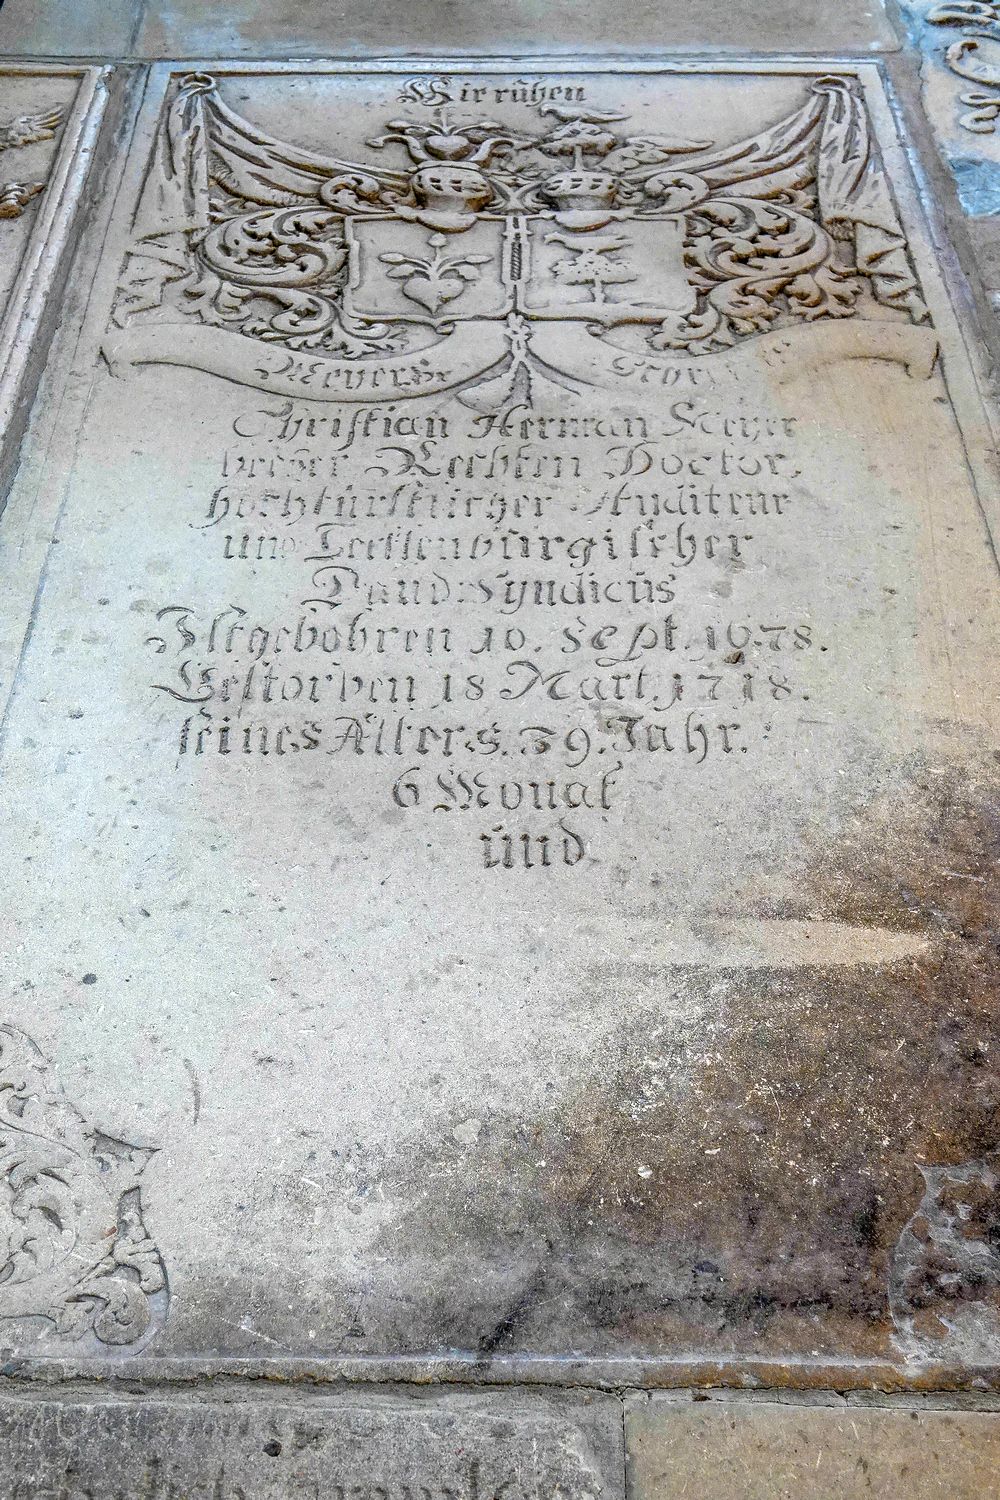 Wir rühen
Meyers
Christian Herman Meyer
beeder Rechten Doctor,
hochfürstlicher
und Tecklenbürgischer
Land Syndicüs
Ist gebohren 10. Sept. 1678.
Gestorben 18 Mart. 1718.
seines Alters. 39. Jahr.
6 Monat
ünd